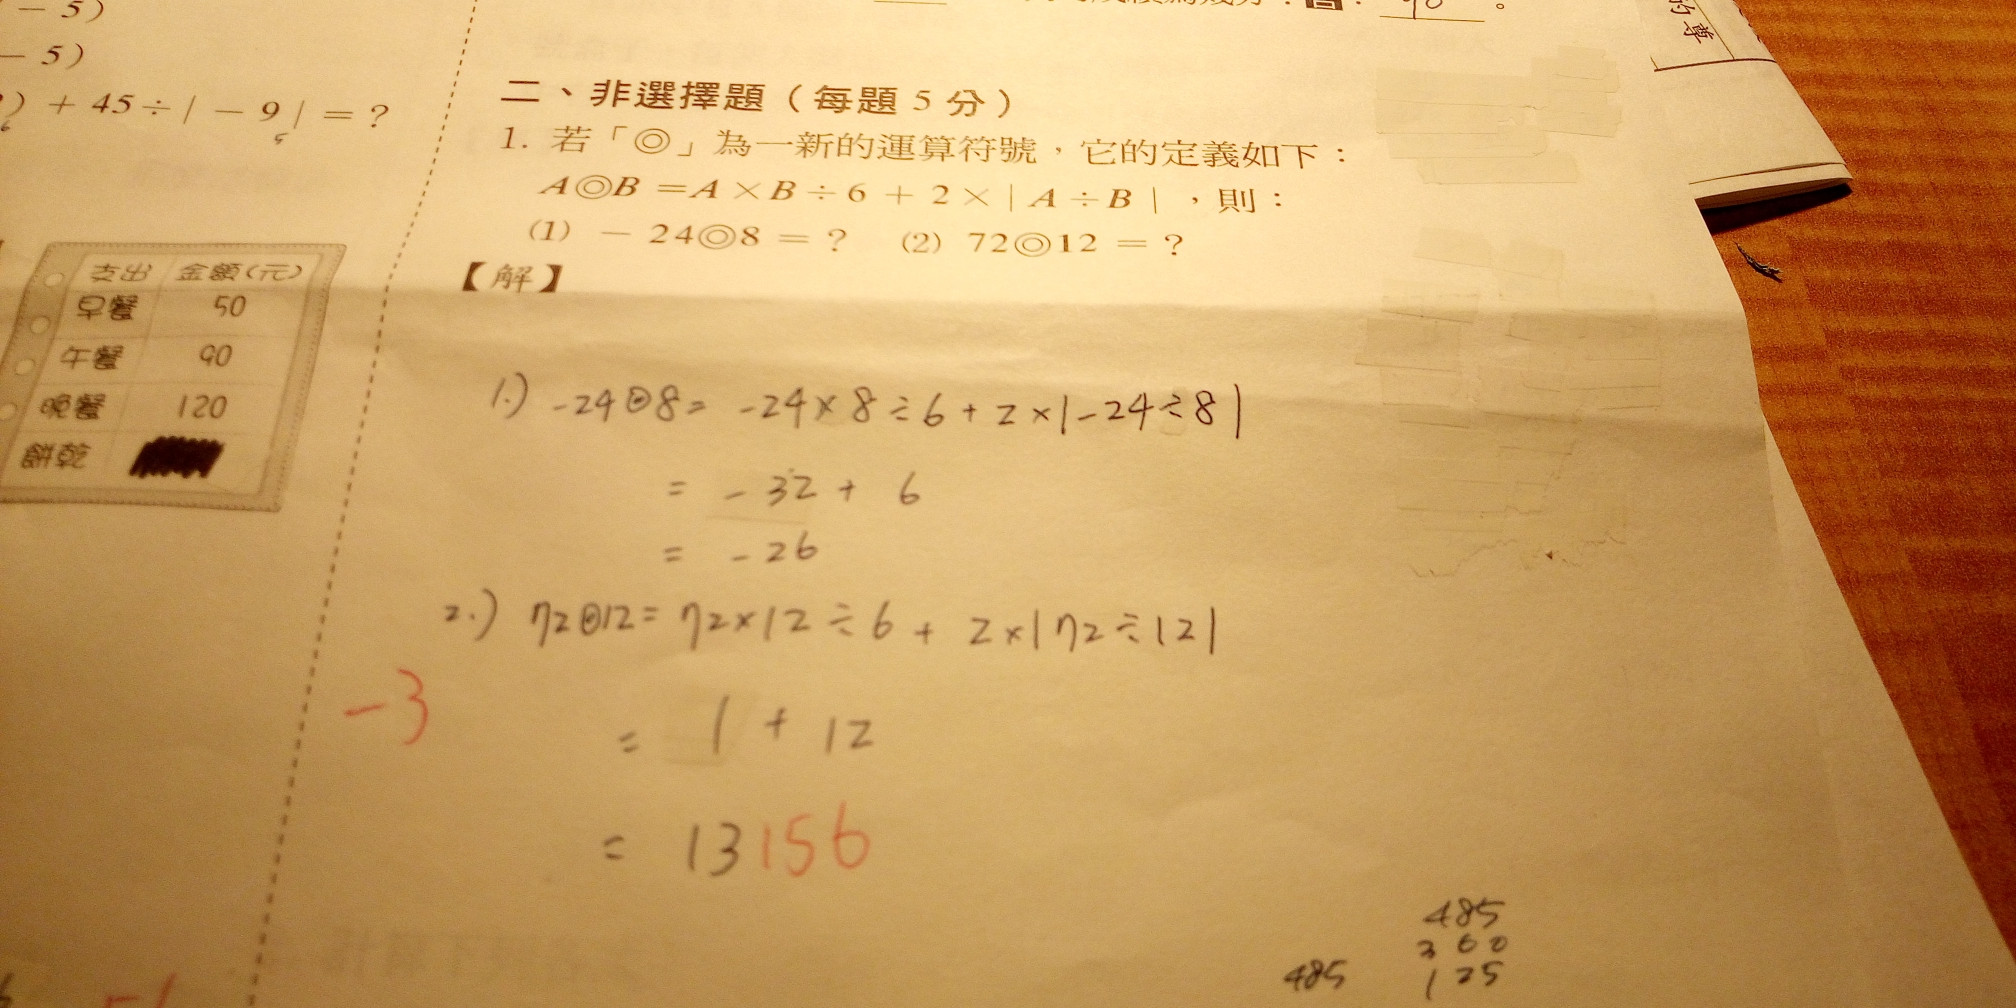 - 5)
- 5)
) + 45 ÷ | - 9 | = ?
支出 金額(元)
早餐 50
午餐 90
晚餐 120
餅乾
二、非選擇題(每題 5 分)
1. 若「◎」為一新的運算符號,它的定義如下:
A◎B =A × B ÷ 6 + 2 × | A ÷ B | ,則:
(1) - 24◎8 = ? (2) 72◎12 = ?
【解】
1.) -24◎8= -24×8÷6+2×|-24÷8|
= -32+ 6
= -26
2.) 72◎12= 72×12÷6+ 2×|72÷12|
-3
= 1 + 12
= 13 156
485
360
485 125
的尊